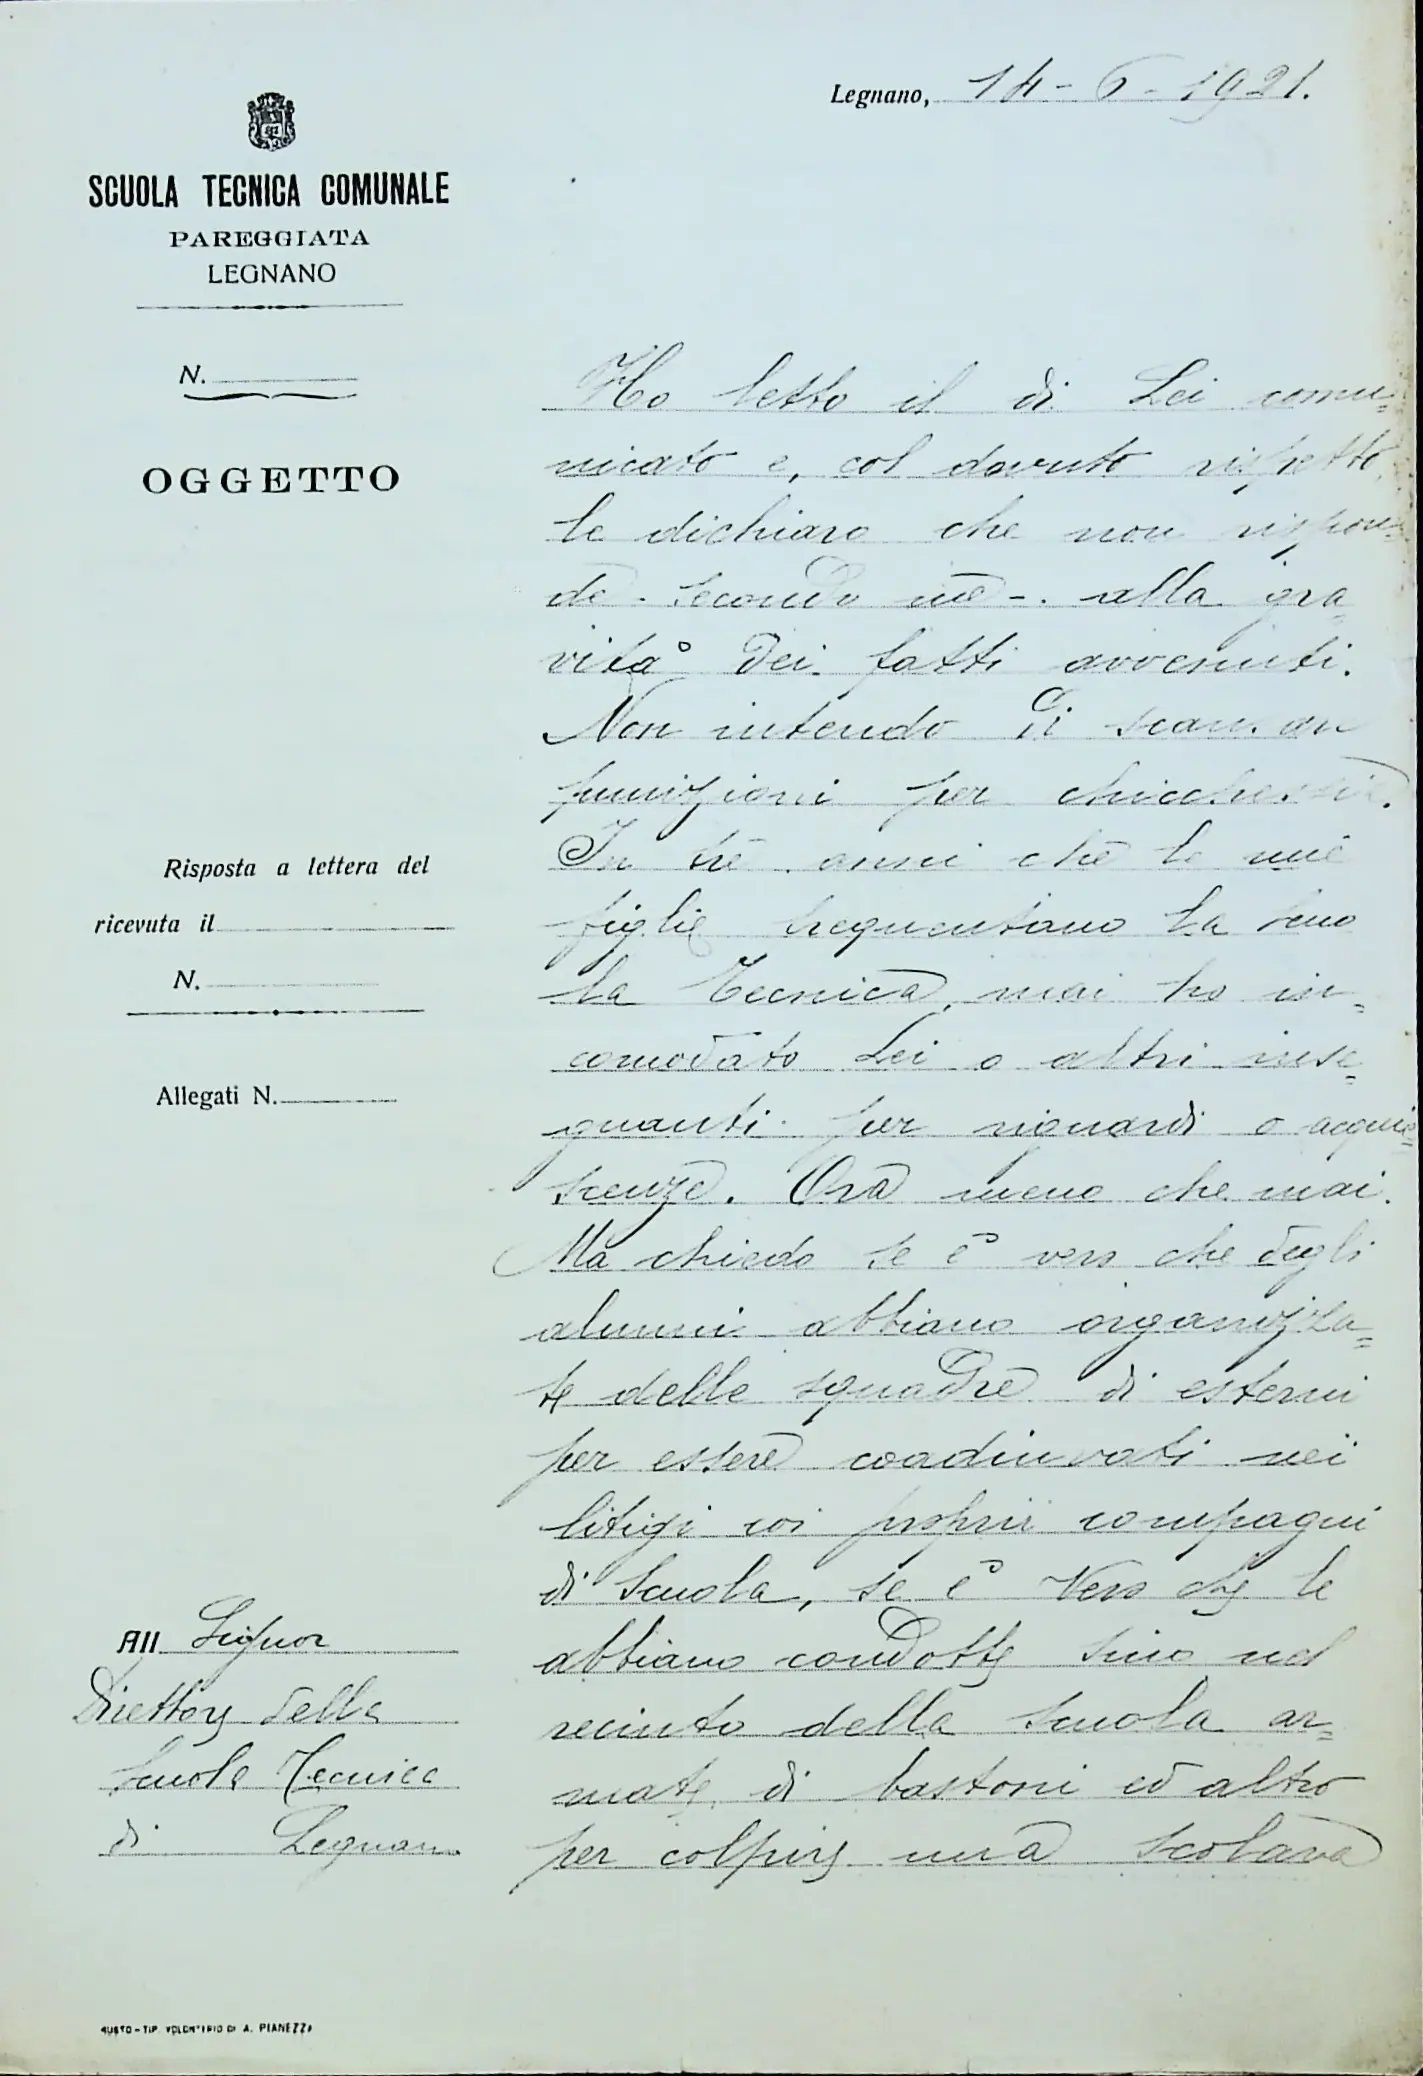 Legnano, 14-6-1921.
SCUOLA TECNICA COMUNALE
PAREGGIATA
LEGNANO
N.
OGGETTO
Risposta a lettera del
ricevuta il
N.
Allegati N.
All Signor
Direttore della
Scuola Tecnica
di Legnano
Ho letto il di Lei comu=
nicato e, col dovuto rispetto,
le dichiaro che non rispon=
de - secondo me -. alla gra=
vità dei fatti avvenuti.
Non intendo di
punizioni per chicchessia.
In tre anni che le mie
figlie frequentano la Scuo
la Tecnica, mai ho in=
comodato Lei o altri inse=
gnanti per riguardi o acquie=
scenze. Ora meno che mai.
Ma chiedo se è vero che degli
alunni abbiano organizza=
te delle squadre di esterni
per essere coadiuvati nei
litigi coi proprii compagni
di Scuola, se è vero che le
abbiano condotte sino nel
recinto della Scuola ar=
mate di bastoni ed altro
per colpire una scolara
BUSTO - TIP. VOLONTERIO DI A. PIANEZZA